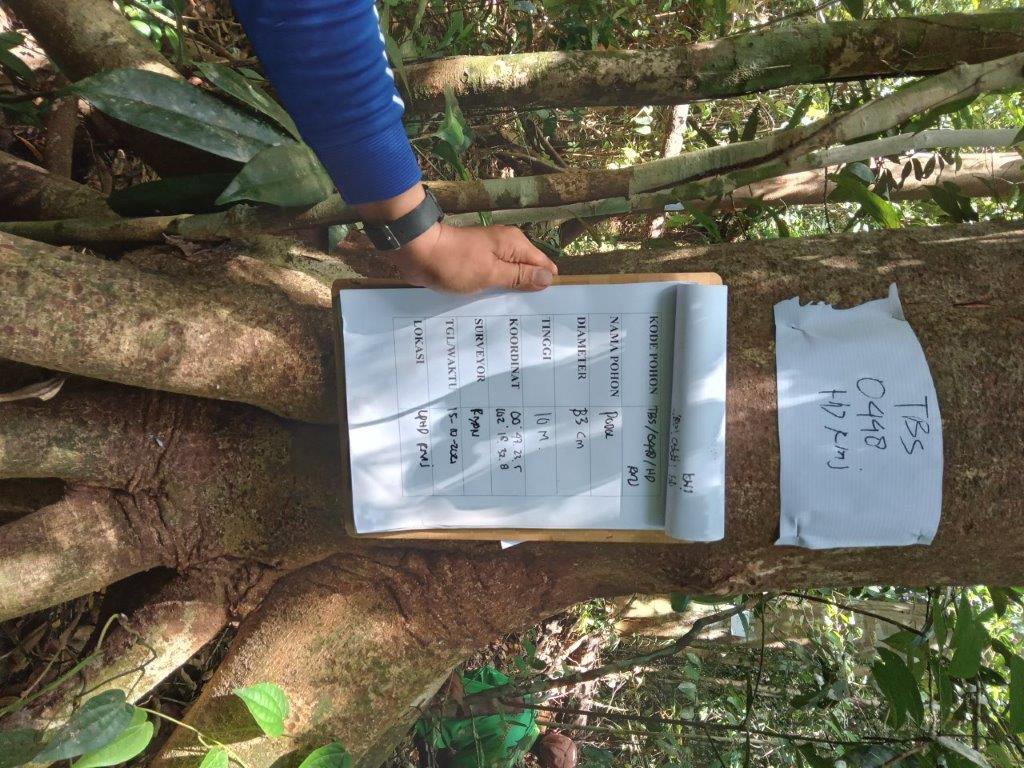 TBS
0448
HD RMJ
KODE POHON TBS/0448/HD
NAMA POHON
DIAMETER 83 cm
TINGGI 10 M
KOORDINAT 00° 47' 23,5
102° 18' 32.8
SURVEYOR RYAN
TGL/WAKTU 15-10-2021
LOKASI LPHD